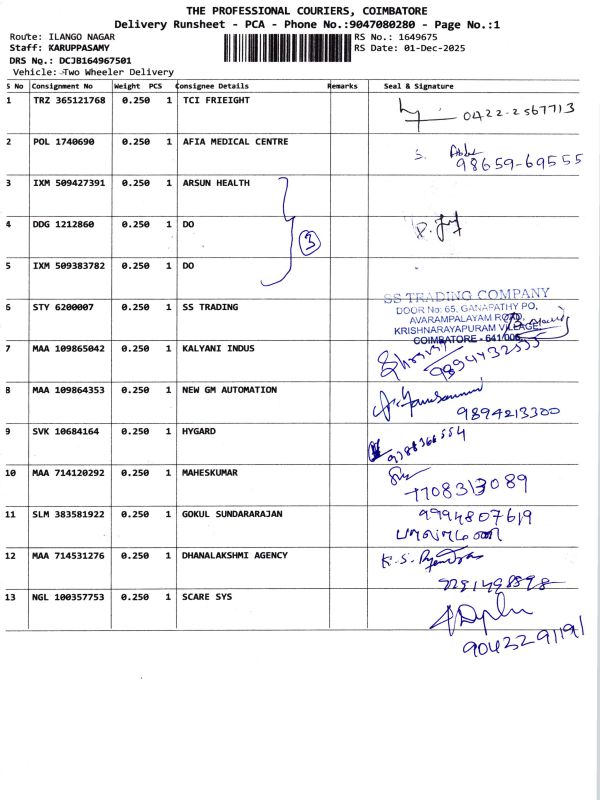 THE PROFESSIONAL COURIERS, COIMBATORE
Delivery Runsheet - PCA - Phone No.:9047080280 - Page No.:1
Route: ILANGO NAGAR
RS No.: 1649675
Staff: KARUPPASAMY
RS Date: 01-Dec-2025
DRS No.: DCJB164967501
Vehicle: Two Wheeler Delivery
S No Consignment No Weight PCS Consignee Details Remarks Seal & Signature
1 TRZ 365121768 0.250 1 TCI FRIEIGHT 0422-2567713
2 POL 1740690 0.250 1 AFIA MEDICAL CENTRE S.
98659-69555
3 IXM 509427391 0.250 1 ARSUN HEALTH
4 DDG 1212860 0.250 1 DO
3
5 IXM 509383782 0.250 1 DO
6 STY 6200007 0.250 1 SS TRADING
SS TRADING COMPANY
DOOR No: 65, GANAPATHY PO,
AVARAMPALAYAM ROAD,
KRISHNARAYAPURAM VILLAGE
COIMBATORE - 641 006
7 MAA 109865042 0.250 1 KALYANI INDUS
9894432555
8 MAA 109864353 0.250 1 NEW GM AUTOMATION
9894213300
9 SVK 10684164 0.250 1 HYGARD
10 MAA 714120292 0.250 1 MAHESKUMAR
7708313089
11 SLM 383581922 0.250 1 GOKUL SUNDARARAJAN 9994807619
12 MAA 714531276 0.250 1 DHANALAKSHMI AGENCY K.S.
13 NGL 100357753 0.250 1 SCARE SYS